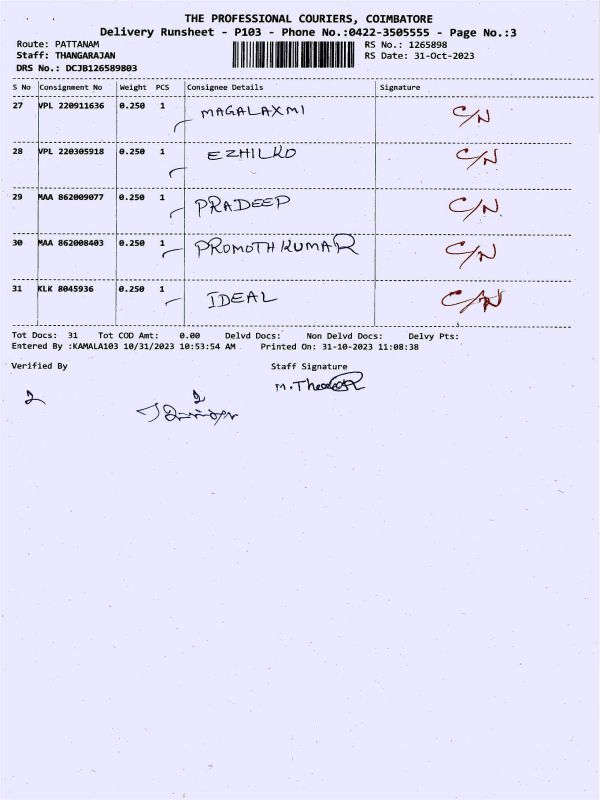 THE PROFESSIONAL COURIERS, COIMBATORE
Delivery Runsheet - P103 - Phone No.:0422-3505555 - Page No.:3
Route: PATTANAM RS No.: 1265898
Staff: THANGARAJAN RS Date: 31-Oct-2023
DRS No.: DCJB126589803
S No Consignment No Weight PCS Consignee Details Signature
27 VPL 220911636 0.250 1 MAGALAXMI C/N
28 VPL 220305918 0.250 1 EZHILKO C/N
29 MAA 862009077 0.250 1 PRADEEP C/N
30 MAA 862008403 0.250 1 PROMOTH KUMAR C/N
31 KLK 8045936 0.250 1 IDEAL C/N
Tot Docs: 31 Tot COD Amt: 0.00 Delvd Docs: Non Delvd Docs: Delvy Pts:
Entered By :KAMALA103 10/31/2023 10:53:54 AM Printed On: 31-10-2023 11:08:38
Verified By Staff Signature
2 2